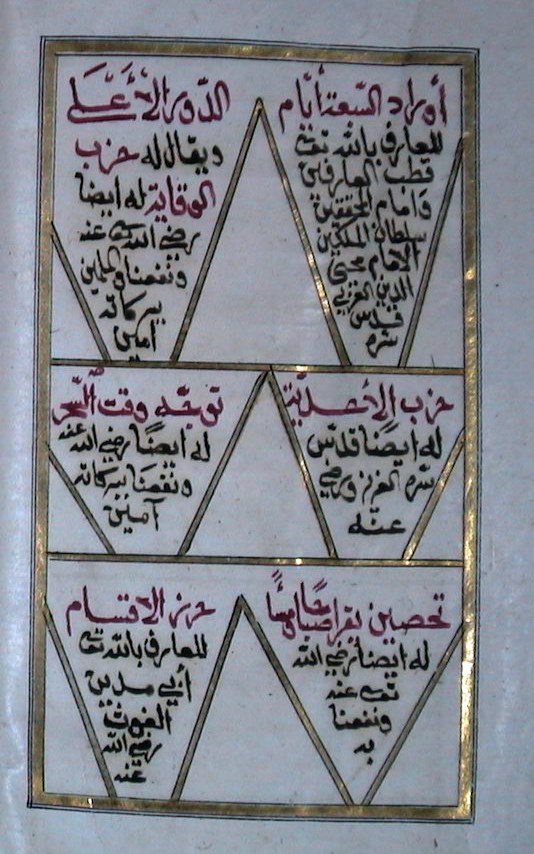 أوراد السبعة أيام
للعارف بالله تعالى
قطب العارفين
وامام المحققين
سلطان الملكين
الامام محيى
الدين العربي
قدس
سره
الدور الأعلى
ويقال له حزب
الوقاية له ايضا
رضي الله عنه
ونفعنا والمسلمين
ببركاته
آمين
حزب الأحدية
له ايضًا قدس
سره العزيز ورضي
عنه
توجه وقت السحر
له ايضًا رضي الله عنه
ونفعنا ببركاته
آمين
تحصين يقرا صباحًا ومساءً
له ايضا رضي الله
تعالى عنه
ونفعنا
به
حرز الاقسام
للعارف بالله تعالى
أبي مدين
الغوث
رضي الله
عنه